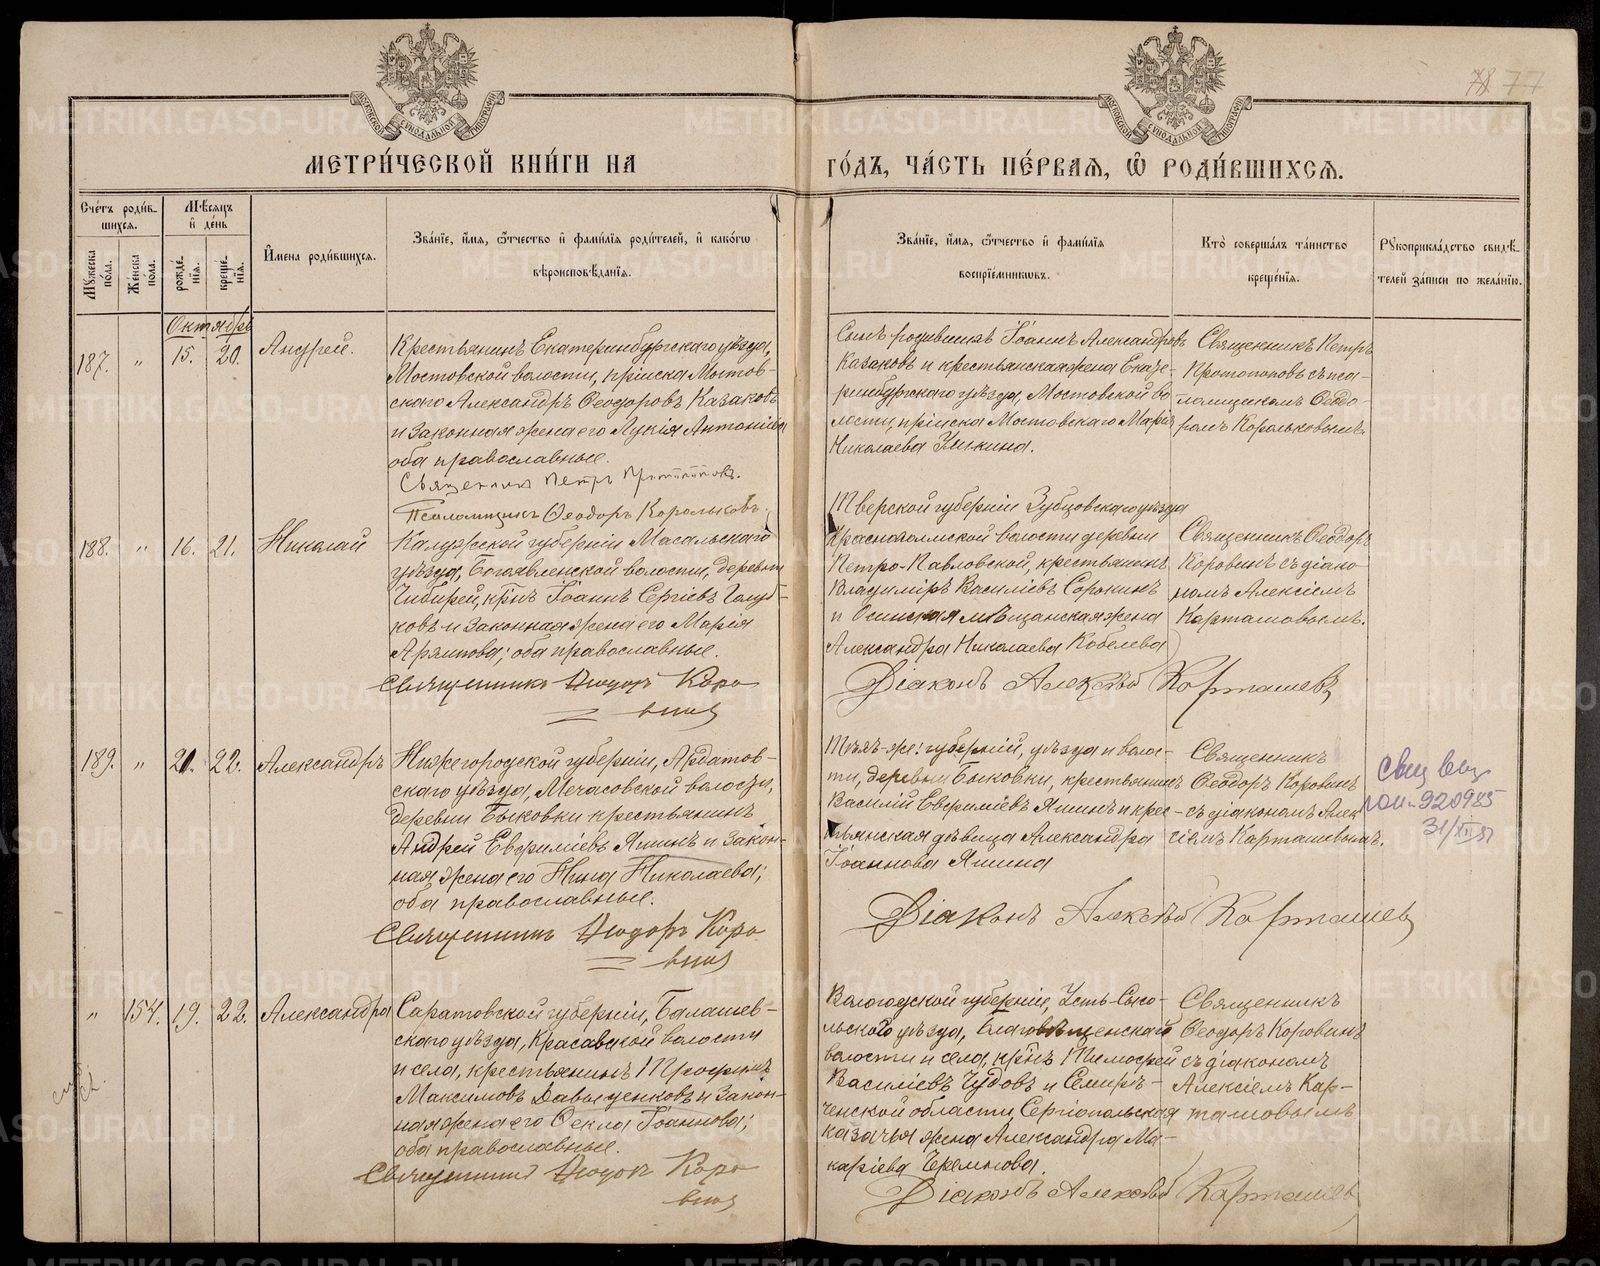 78 77
МОСКОВСКОЙ СѴНОДАЛЬНОЙ ТИПОГРАФІИ
МОСКОВСКОЙ СѴНОДАЛЬНОЙ ТИПОГРАФІИ
МЕТРИ́ЧЕСКОЙ КНИ́ГИ НА
ГО́ДЪ, ЧА́СТЬ ПЕ́РВАЯ, Ѿ РОДИ́ВШИХСЯ.
Сче́тъ роди́в-
шихся.
Мѣ́сяцъ
и҆ де́нь
Му́жеска
по́ла.
Же́нска
по́ла.
рожде́-
нія.
креще́-
нія.
И҆мена роди́вшихся.
Зва́ніе, и҆́мя, ѻ҆́тчество и҆ фами́лія роди́телей, и҆ како́гѡ
вѣроисповѣ́данія.
Зва́ніе, и҆́мя, ѻ҆́тчество и҆ фами́лія
воспріе́мниковъ.
Кто̀ соверша́лъ та́инство
креще́нія.
Рукоприкла́дство свидѣ́-
телей за́писи по жела́нію.
Октября
187. „ 15. 20. Андрей.
Крестьянинъ Екатеринбургскаго уѣзда,
Мостовской волости, пріиска Мостов-
скаго Александръ Ѳеодоровъ Казаковъ
и законная жена его Лукія Антоніева
оба православные.
Священникъ Петръ Протопоповъ.
Псаломщикъ Ѳеодоръ Корольковъ.
Сынъ родившихъ Іоаннъ Александровъ
Казаковъ и крестьянская жена Екате-
ринбургскаго уѣзда, Мостовской во
лости, пріиска Мостовскаго Марія
Николаева
Священникъ Петръ
Протопоповъ съ пса-
ломщикомъ Ѳеодо-
ромъ Корольковымъ.
188. „ 16. 21. Николай
Калужской губерніи Масальскаго
уѣзда, Богоявленской волости, деревни
крнъ Іоаннъ Сергіевъ Голуб-
ковъ и законная жена его Марія
оба православные.
Священникъ Ѳеодоръ Коро
винъ
Тверской губерніи Зубцовскаго уѣзда
Краснохолмской волости деревни
Петро-Павловской, крестьянинъ
Владиміръ Василіевъ Сорокинъ
и Осинская мѣщанская жена
Александра Николаева Кобелева
Діаконъ Алексѣй Карташевъ
Священникъ Ѳеодоръ
Коровинъ съ діако
номъ Алексіемъ
Карташовымъ.
189. „ 21. 22. Александръ
Нижегородской губерніи, Ардатов-
скаго уѣзда, Мечасовской волости,
деревни Быковки крестьянинъ
Андрей Евѳиміевъ Яшинъ и закон-
ная жена его Нина Николаева;
оба православные.
Священникъ Ѳеодоръ Коро
винъ
Тѣхъ-же: губерніи, уѣзда и волос-
ти, деревни Быковки, крестьянинъ
Василій Евѳиміевъ Яшинъ и крес-
тьянская дѣвица Александра
Іоаннова Яшина
Діаконъ Алексѣй Карташевъ
Священникъ
Ѳеодоръ Коровинъ
съ діакономъ Алек
сіемъ Карташовымъ.
920985
„ 154. 19. 22. Александра
Саратовской губерніи, Балашев-
скаго уѣзда, Красавской волости
и села, крестьянинъ Трофимъ
Максимовъ Давыденковъ и закон-
ная жена его Ѳекла Іоаннова;
оба православные.
Священникъ Ѳеодоръ Коро
винъ
Вологодской губерніи, Усть-Сысо-
льскаго уѣзда, Благовѣщенской
волости и села, крнъ Тимоѳей
Василіевъ Чудовъ и Семирѣ-
ченской области, Сергіопольская
казачья жена Александра Ма-
каріева Черемнова.
Діаконъ Алексѣй Карташевъ
Священникъ
Ѳеодоръ Коровинъ
съ діакономъ
Алексіемъ Кар-
ташовымъ
METRIKI.GASO-URAL.RU